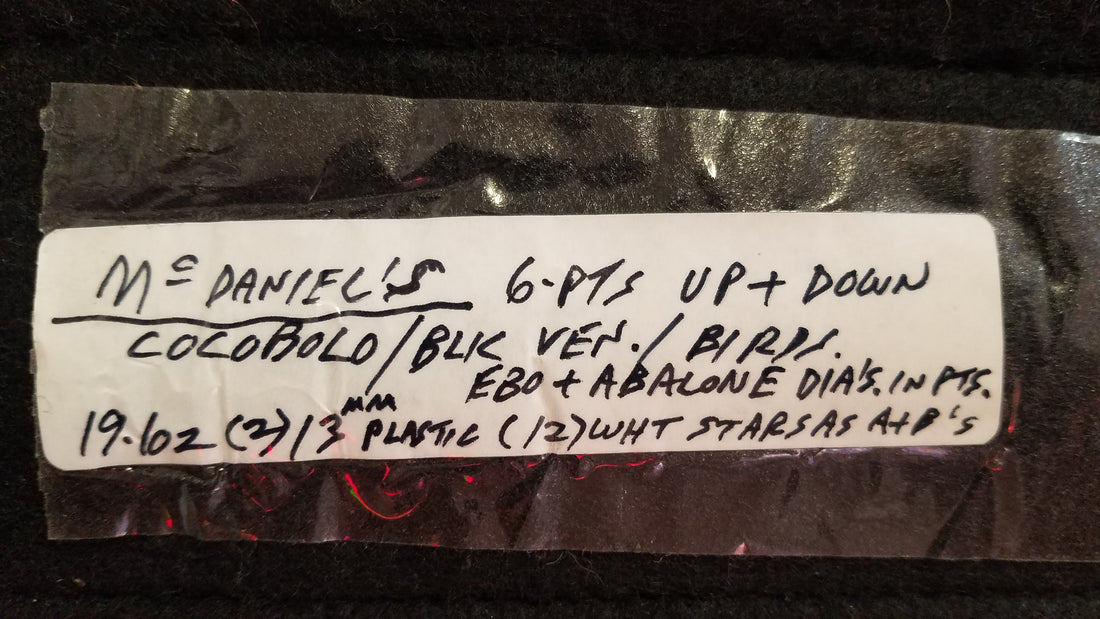 Mc DANIEL'S 6-PTS UP + DOWN
COCOBOLO/BLK VEN./BIRDS.
EBO + ABALONE DIA'S. IN PTS.
19.6oz (2) 13MM PLASTIC (12) WHT STARS AS A+P's